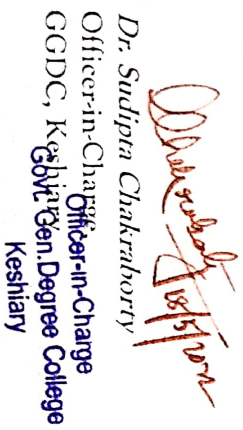 Dr. Sudipta Chakraborty
Officer-in-Charge
GGDC, Keshiary
Officer-in-Charge
Govt. Gen. Degree College
Keshiary